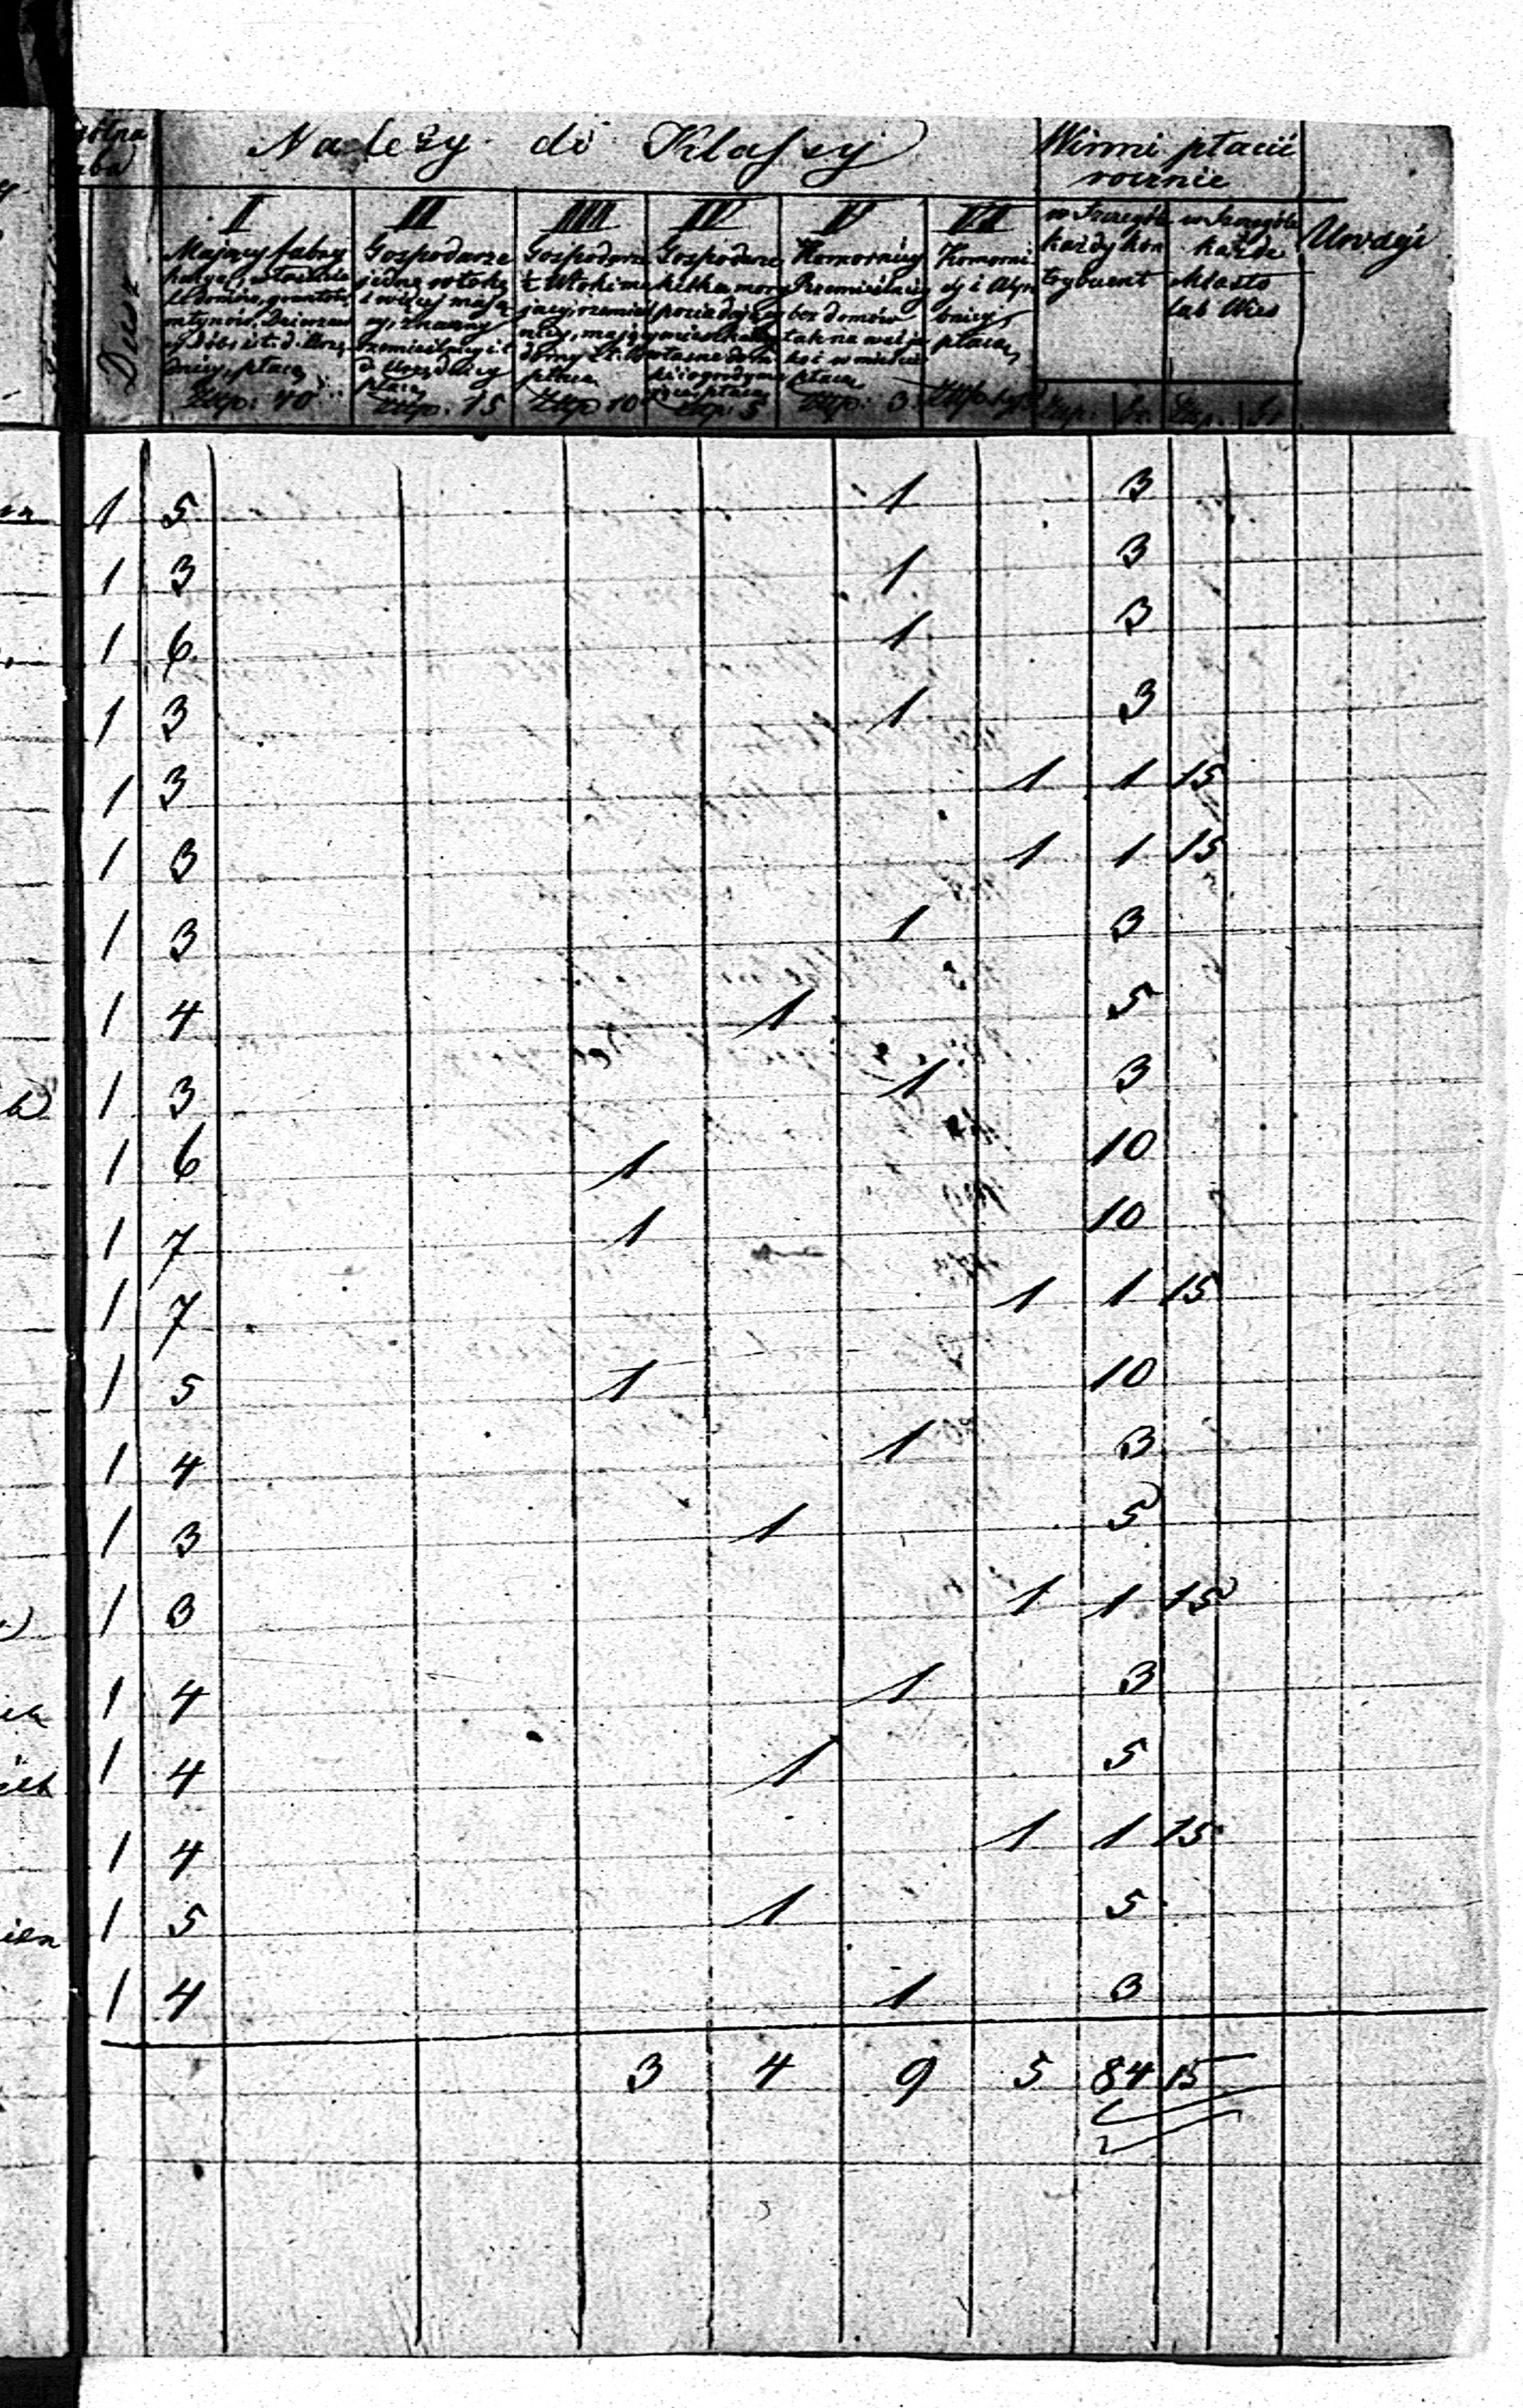 Należy do Klassy
Winni płacić
rocznie
Dusz
I II III IV V VI
Uwagi
Mający fabry
Gospodarze
jedną włokę
i więcej mają
cy, znaczny
rzemieślnicy i t
d. Urzędnicy
płacą
Złp: 15
Gospodarze
½ Włóki ma
płacą
Złp 10
Gospodarze
kilka morg
posiadający
Złp: 5
Komornicy
Rzemieślnicy
bez domów
tak na wsi ja
ko i w mieście
płacą
Złp: 3
Komorni
cy i Wyro
bnicy
płacą
w Szczególe
każdy kon
trybuent
w Szczególe
każde
Miasto
lub Wieś
Złp: Gr. Złp. Gr
1 5 1 3
1 3 1 3
1 6 1 3
1 3 1 3
1 3 1 1 15
1 3 1 1 15
1 3 1 3
1 4 1 5
1 3 1 3
1 6 1 10
1 7 1 10
1 7 1 1 15
1 5 1 10
1 4 1 3
1 3 1 5
1 3 1 1 15
1 4 1 3
1 4 1 5
1 4 1 1 15
1 5 1 5
1 4 1 3
3 4 9 5 84 15